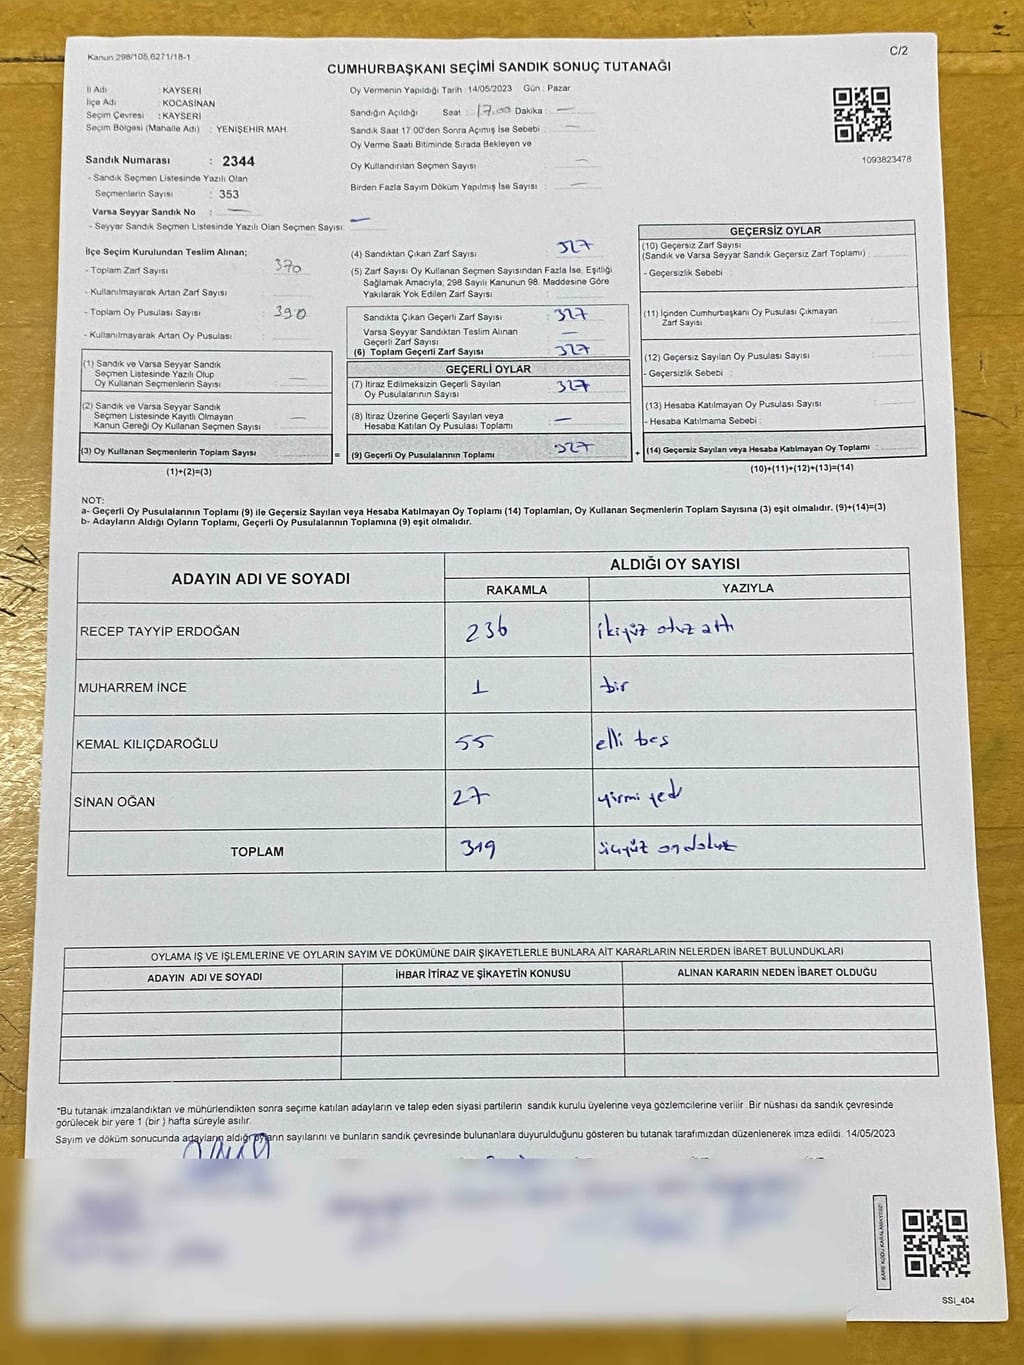 Kanun 298/105,6271/18-1
C/2
CUMHURBAŞKANI SEÇİMİ SANDIK SONUÇ TUTANAĞI
İl Adı : KAYSERİ
İlçe Adı : KOCASİNAN
Seçim Çevresi : KAYSERİ
Seçim Bölgesi (Mahalle Adı) : YENİŞEHİR MAH.
Sandık Numarası : 2344
- Sandık Seçmen Listesinde Yazılı Olan
Seçmenlerin Sayısı : 353
Varsa Seyyar Sandık No : —
- Seyyar Sandık Seçmen Listesinde Yazılı Olan Seçmen Sayısı: —
Oy Vermenin Yapıldığı Tarih : 14/05/2023 Gün : Pazar
Sandığın Açıldığı Saat : 17.00 Dakika : —
Sandık Saat 17:00'den Sonra Açımış İse Sebebi : —
Oy Verme Saati Bitiminde Sırada Bekleyen ve
Oy Kullandırılan Seçmen Sayısı : —
Birden Fazla Sayım Döküm Yapılmış İse Sayısı : —
1093823478
İlçe Seçim Kurulundan Teslim Alınan;
- Toplam Zarf Sayısı : 370
- Kullanılmayarak Artan Zarf Sayısı :
- Toplam Oy Pusulası Sayısı : 390
- Kullanılmayarak Artan Oy Pusulası :
(1) Sandık ve Varsa Seyyar Sandık
Seçmen Listesinde Yazılı Olup
Oy Kullanan Seçmenlerin Sayısı : —
(2) Sandık ve Varsa Seyyar Sandık
Seçmen Listesinde Kayıtlı Olmayan
Kanun Gereği Oy Kullanan Seçmen Sayısı : —
(3) Oy Kullanan Seçmenlerin Toplam Sayısı :
(1)+(2)=(3)
=
(4) Sandıktan Çıkan Zarf Sayısı : 327
(5) Zarf Sayısı Oy Kullanan Seçmen Sayısından Fazla İse, Eşitliği
Sağlamak Amacıyla, 298 Sayılı Kanunun 98. Maddesine Göre
Yakılarak Yok Edilen Zarf Sayısı :
Sandıkta Çıkan Geçerli Zarf Sayısı : 327
Varsa Seyyar Sandıktan Teslim Alınan
Geçerli Zarf Sayısı : —
(6) Toplam Geçerli Zarf Sayısı : 327
GEÇERLİ OYLAR
(7) İtiraz Edilmeksizin Geçerli Sayılan
Oy Pusulalarının Sayısı : 327
(8) İtiraz Üzerine Geçerli Sayılan veya
Hesaba Katılan Oy Pusulası Toplamı : —
(9) Geçerli Oy Pusulalarının Toplamı : 327
+
GEÇERSİZ OYLAR
(10) Geçersiz Zarf Sayısı
(Sandık ve Varsa Seyyar Sandık Geçersiz Zarf Toplamı) :
- Geçersizlik Sebebi :
(11) İçinden Cumhurbaşkanı Oy Pusulası Çıkmayan
Zarf Sayısı :
(12) Geçersiz Sayılan Oy Pusulası Sayısı :
- Geçersizlik Sebebi :
(13) Hesaba Katılmayan Oy Pusulası Sayısı :
- Hesaba Katılmama Sebebi :
(14) Geçersiz Sayılan veya Hesaba Katılmayan Oy Toplamı :
(10)+(11)+(12)+(13)=(14)
NOT:
a- Geçerli Oy Pusulalarının Toplamı (9) ile Geçersiz Sayılan veya Hesaba Katılmayan Oy Toplamı (14) Toplamları, Oy Kullanan Seçmenlerin Toplam Sayısına (3) eşit olmalıdır. (9)+(14)=(3)
b- Adayların Aldığı Oyların Toplamı, Geçerli Oy Pusulalarının Toplamına (9) eşit olmalıdır.
ADAYIN ADI VE SOYADI
ALDIĞI OY SAYISI
RAKAMLA YAZIYLA
RECEP TAYYİP ERDOĞAN 236 ikiyüz otuz altı
MUHARREM İNCE 1 bir
KEMAL KILIÇDAROĞLU 55 elli beş
SİNAN OĞAN 27 yirmi yedi
TOPLAM 319 üçyüz on dokuz
OYLAMA İŞ VE İŞLEMLERİNE VE OYLARIN SAYIM VE DÖKÜMÜNE DAİR ŞİKAYETLERLE BUNLARA AİT KARARLARIN NELERDEN İBARET BULUNDUKLARI
ADAYIN ADI VE SOYADI İHBAR İTİRAZ VE ŞİKAYETİN KONUSU ALINAN KARARIN NEDEN İBARET OLDUĞU
*Bu tutanak imzalandıktan ve mühürlendikten sonra seçime katılan adayların ve talep eden siyasi partilerin sandık kurulu üyelerine veya gözlemcilerine verilir. Bir nüshası da sandık çevresinde
görülecek bir yere 1 (bir ) hafta süreyle asılır.
Sayım ve döküm sonucunda adayların aldığı oyların sayılarını ve bunların sandık çevresinde bulunanlara duyurulduğunu gösteren bu tutanak tarafımızdan düzenlenerek imza edildi. 14/05/2023
KARE KODU KARALAMAYINIZ!
SSİ_404